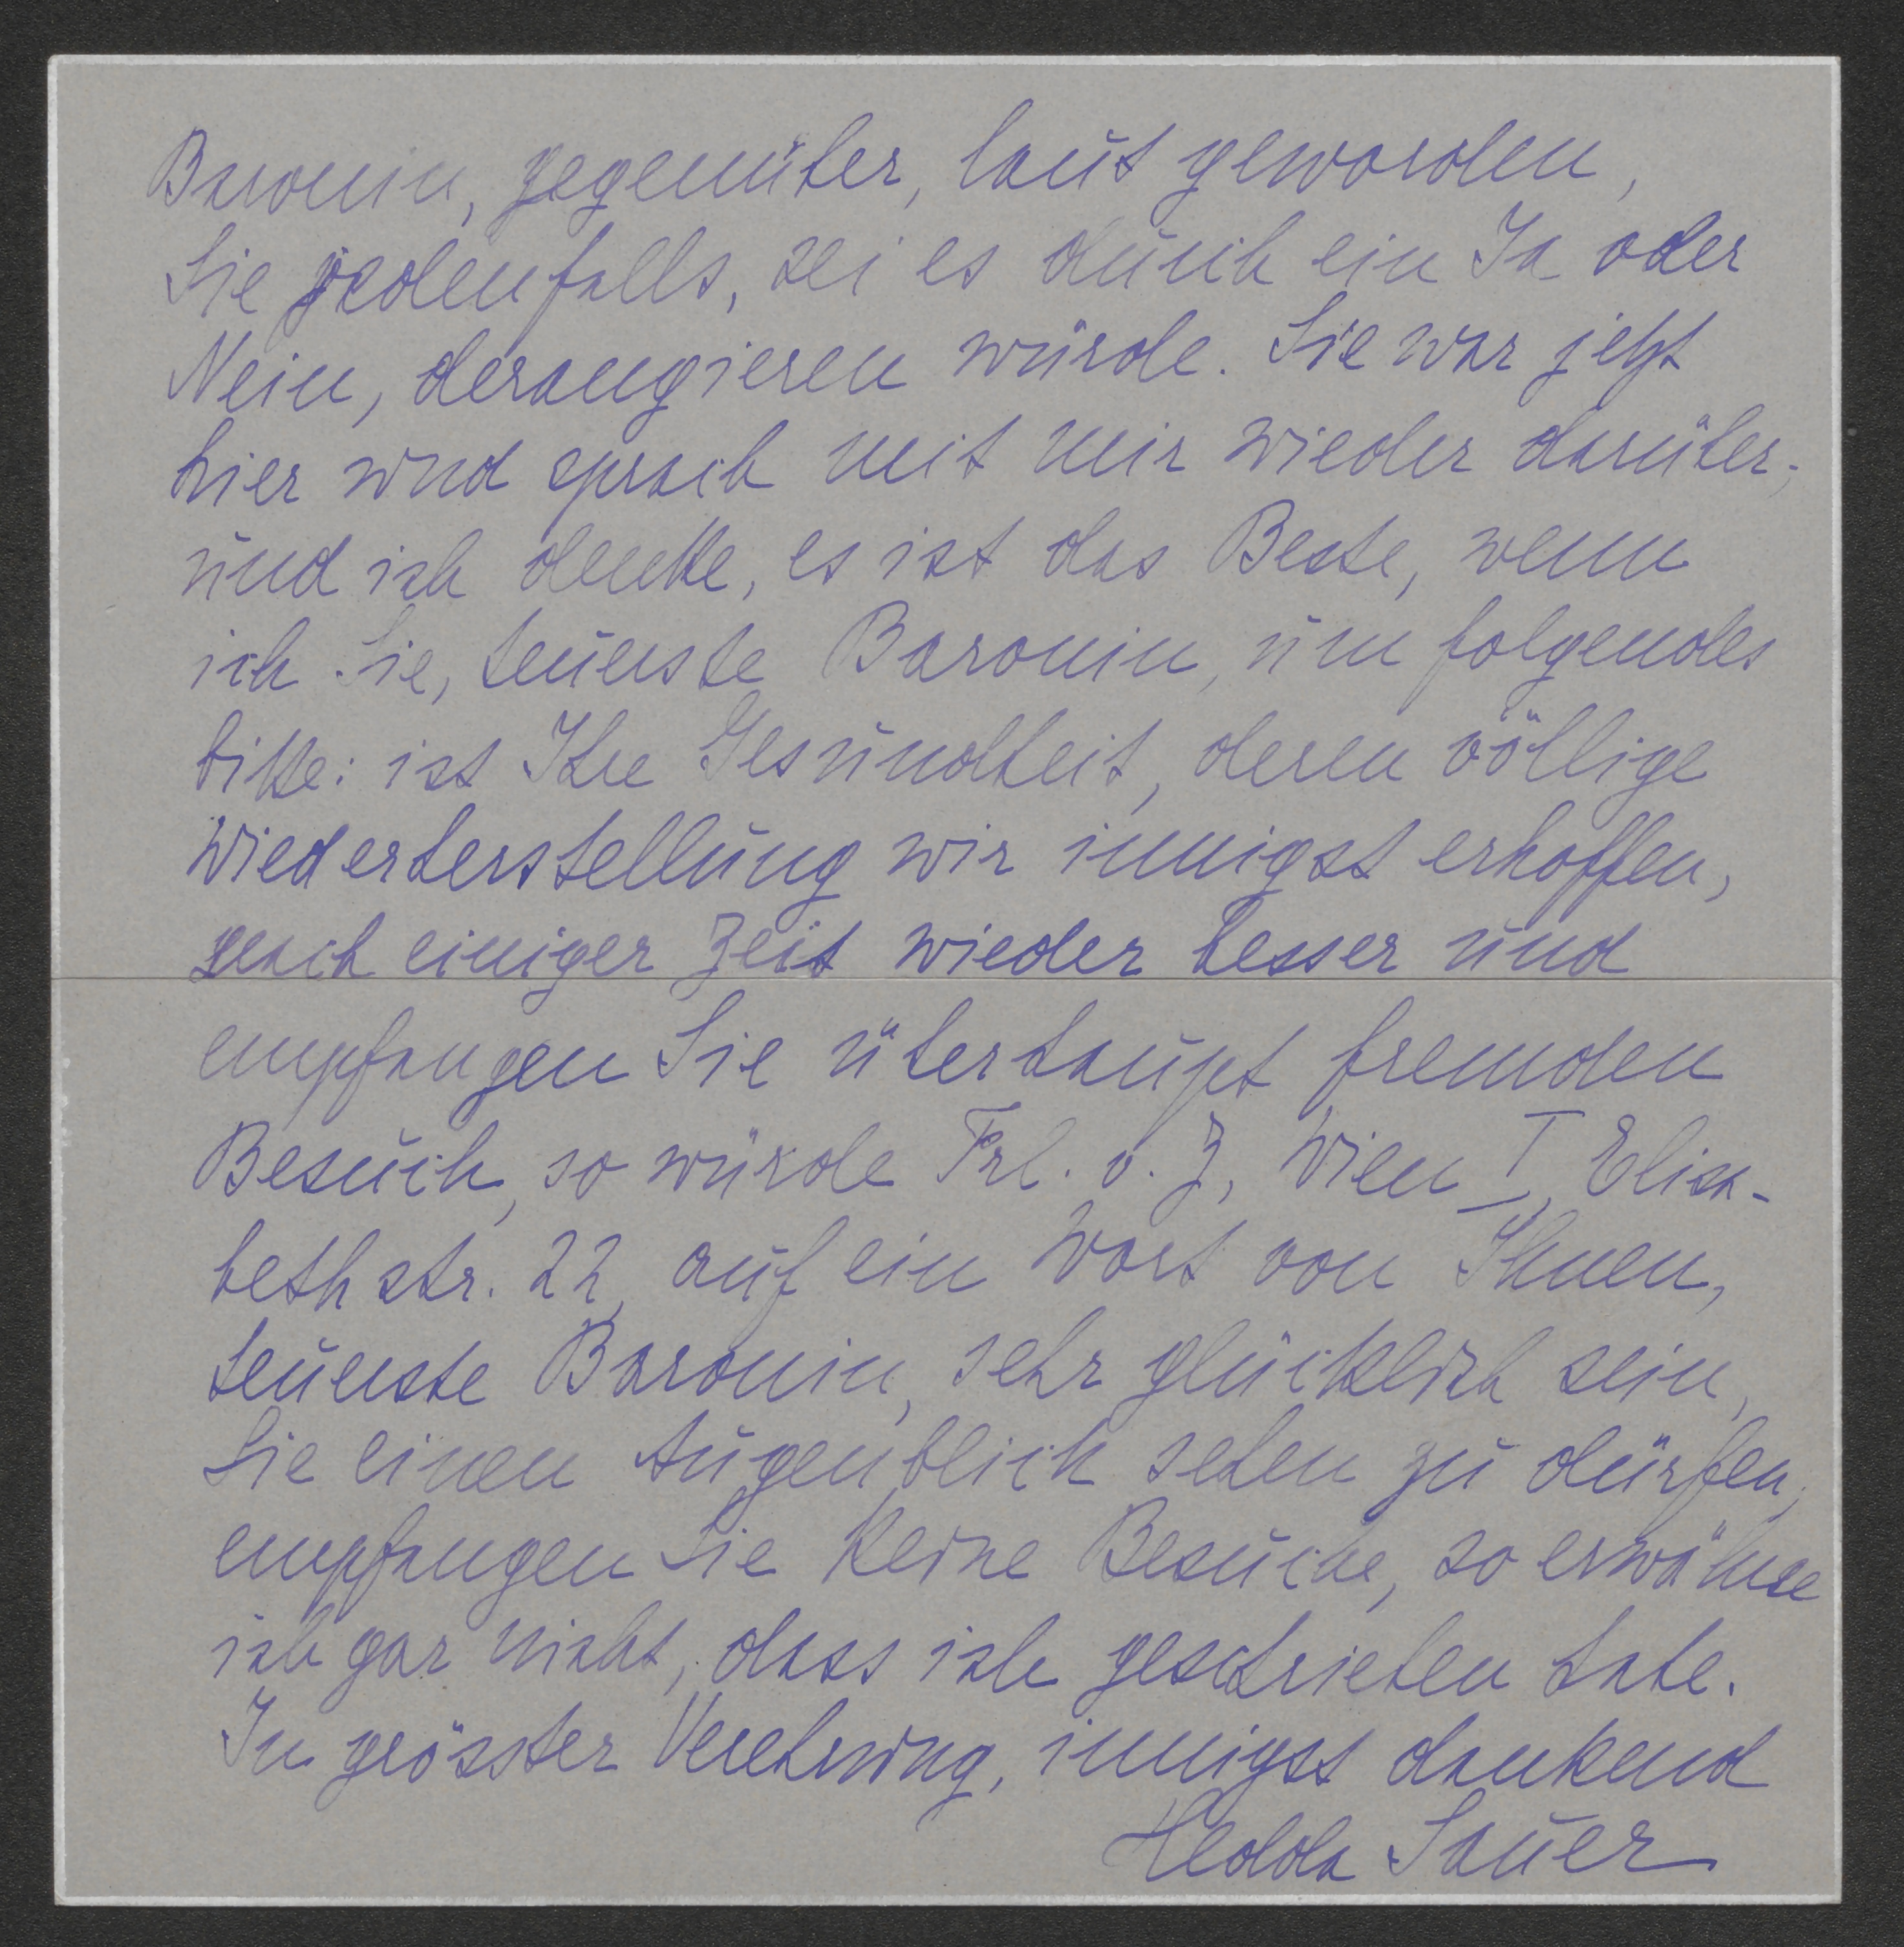 Baronin, gegenüber, laut geworden,
Sie jedenfalls, sei es durch ein Ja oder
Nein, derangieren würde. Sie war jetzt
hier und sprach mit mir wieder darüber;
und ich denke, es ist das Beste, wenn
ich Sie, teuerste Baronin, um folgendes
bitte: ist Ihre Gesundheit, deren völlige
Wiederherstellung wir innigst erhoffen,
nach einiger Zeit wieder besser und
empfangen Sie überhaupt fremden
Besuch, so würde Frl. v. Z, Wien I, Elisa-
bethstr. 22, auf ein Wort von Ihnen,
teuerste Baronin, sehr glücklich sein,
Sie einen Augenblick sehen zu dürfen;
empfangen Sie keine Besuche, so erwähne
ich gar nicht, dass ich geschrieben habe.
In grösster Verehrung, innigst dankend
Hedda Sauer